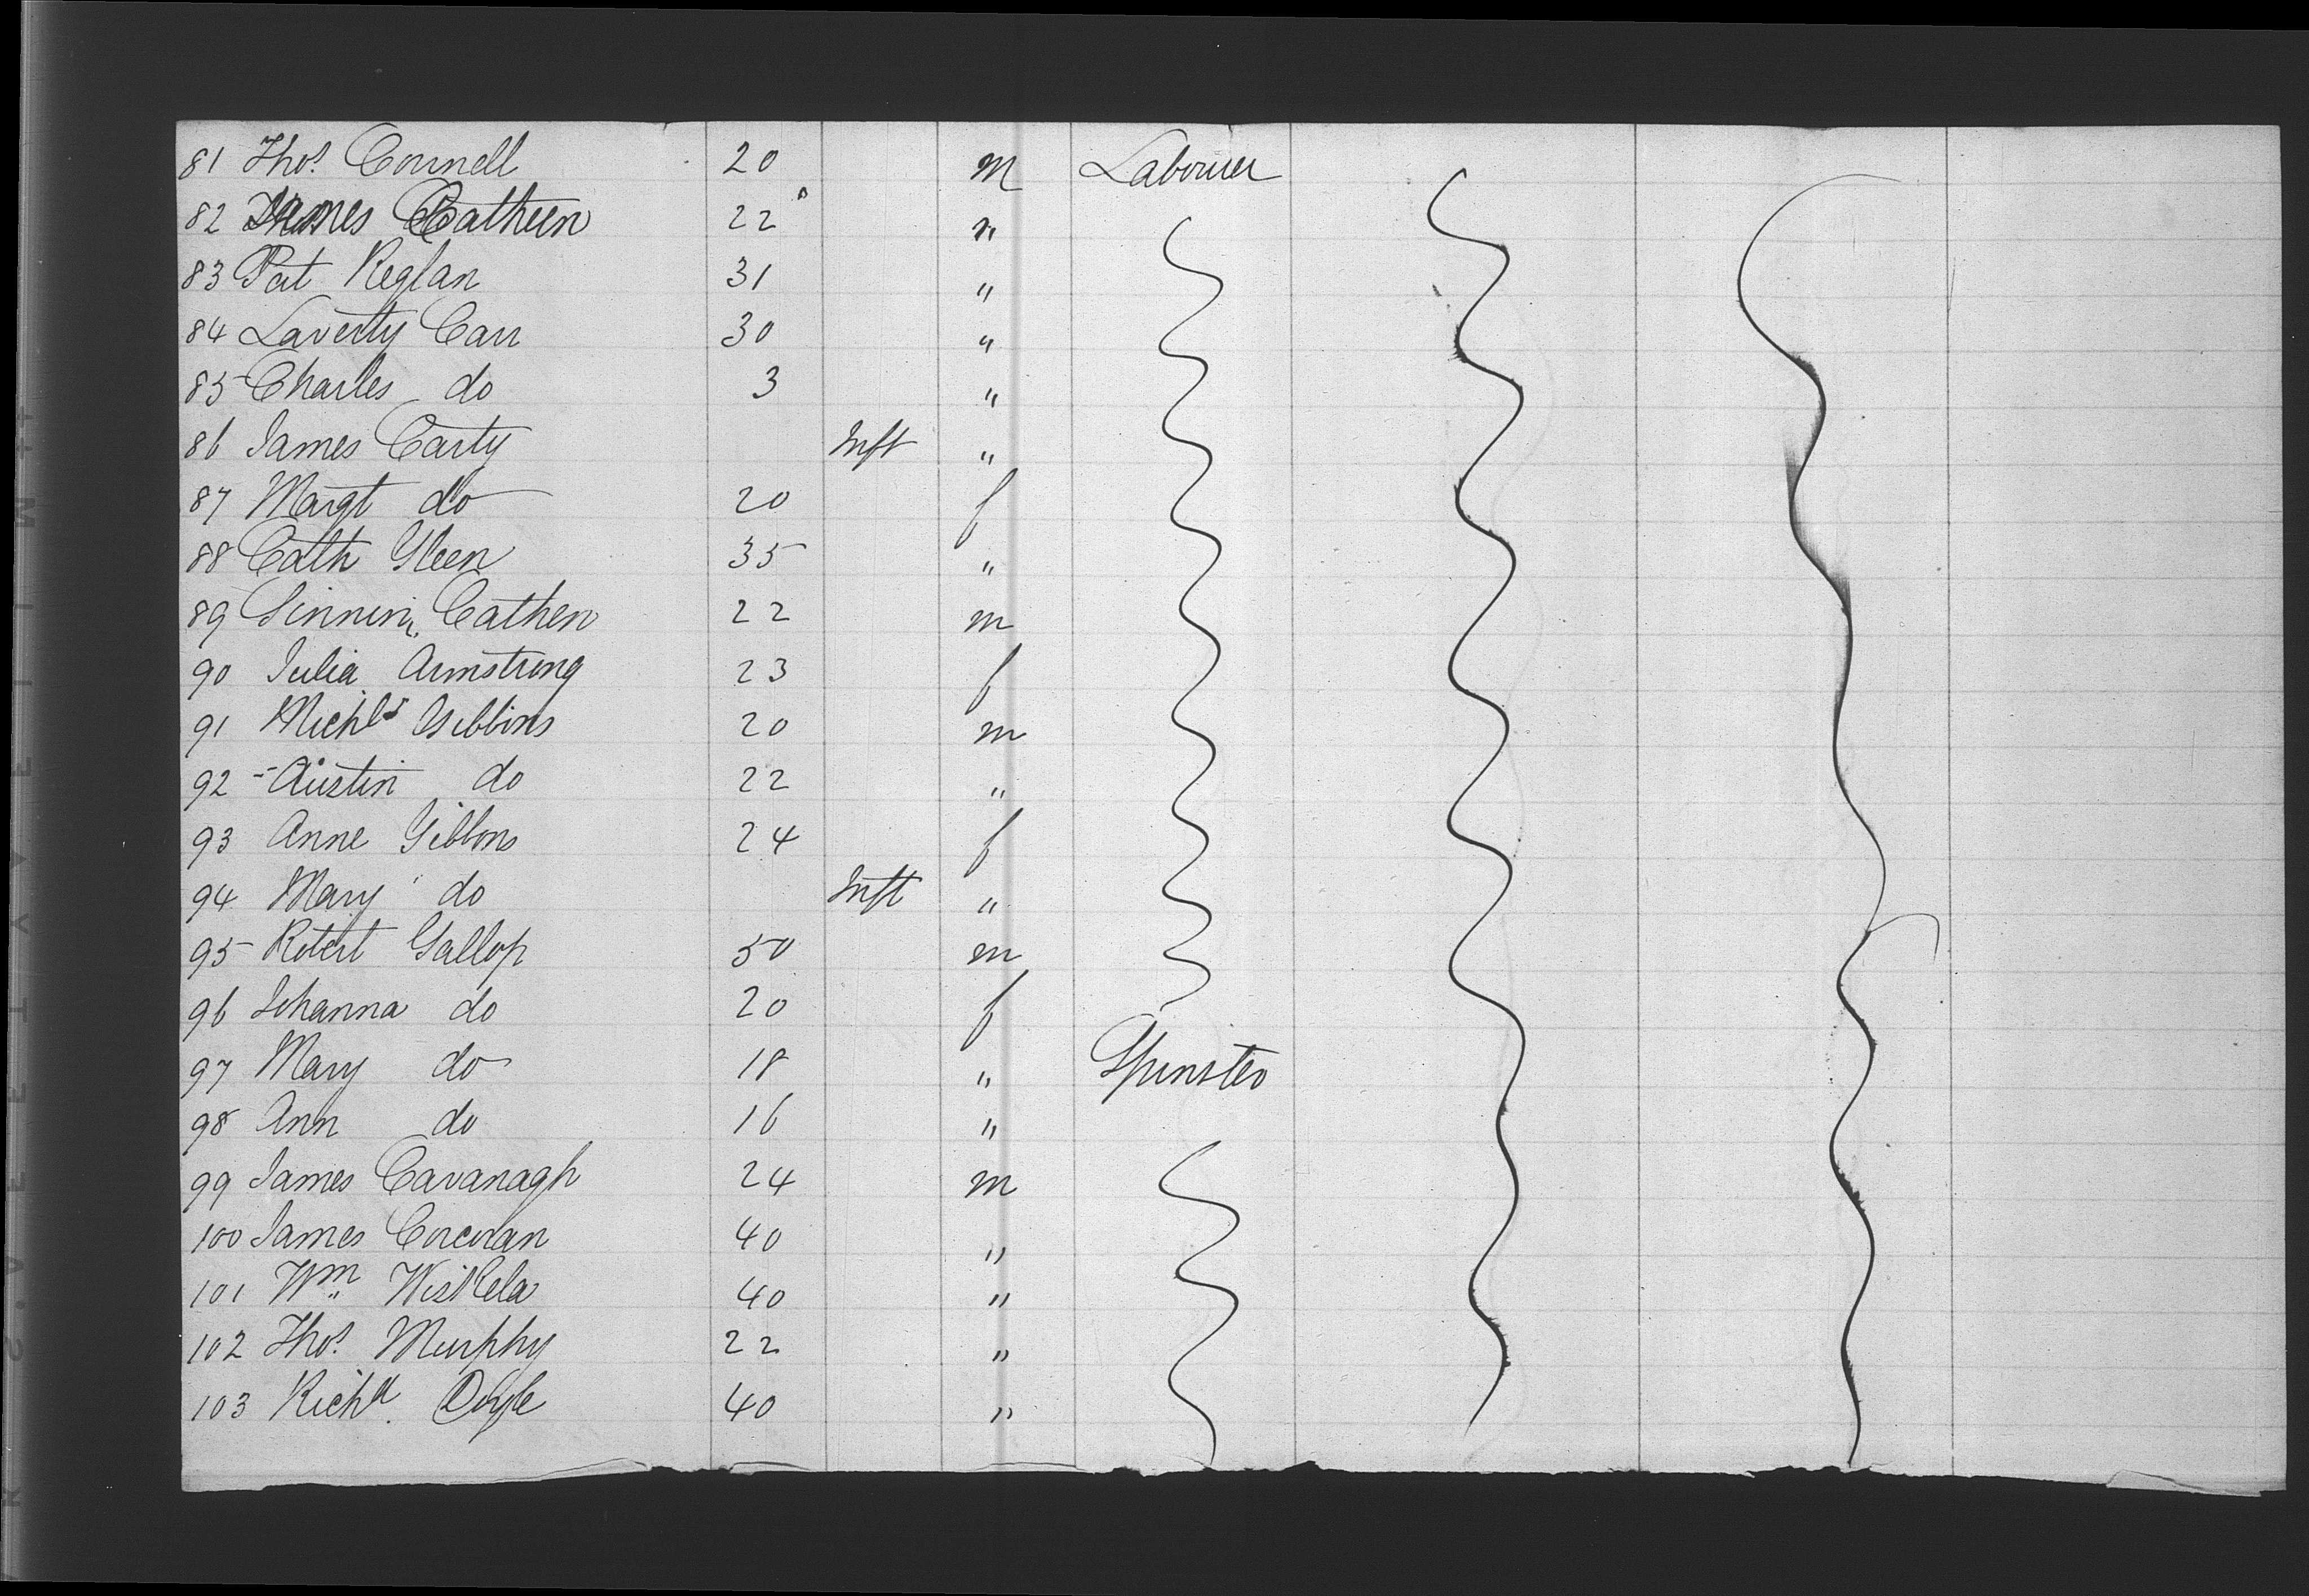 81 Thos. Connell 20 m Labourer
82 James Catheen 22 "
83 Pat Reglan 31 "
84 Laverty Carr 30 "
85 Charles do 3 "
86 James Carty Inft "
87 Margt do 20 f
88 Cath Gleen 35 "
89 Cathen 22 m
90 Julia Armstrong 23 f
91 Michl Gibbins 20 m
92 Austin do 22 "
93 Anne Gibbons 24 f
94 Mary do Inft "
95 Robert Gallop 50 m
96 Johanna do 20 f
97 Mary do 18 " Spinster
98 Ann do 16 "
99 James Cavanagh 24 m
100 James Corcoran 40 "
101 Wm 40 "
102 Thos. Murphy 22 "
103 Richd. Doyle 40 "